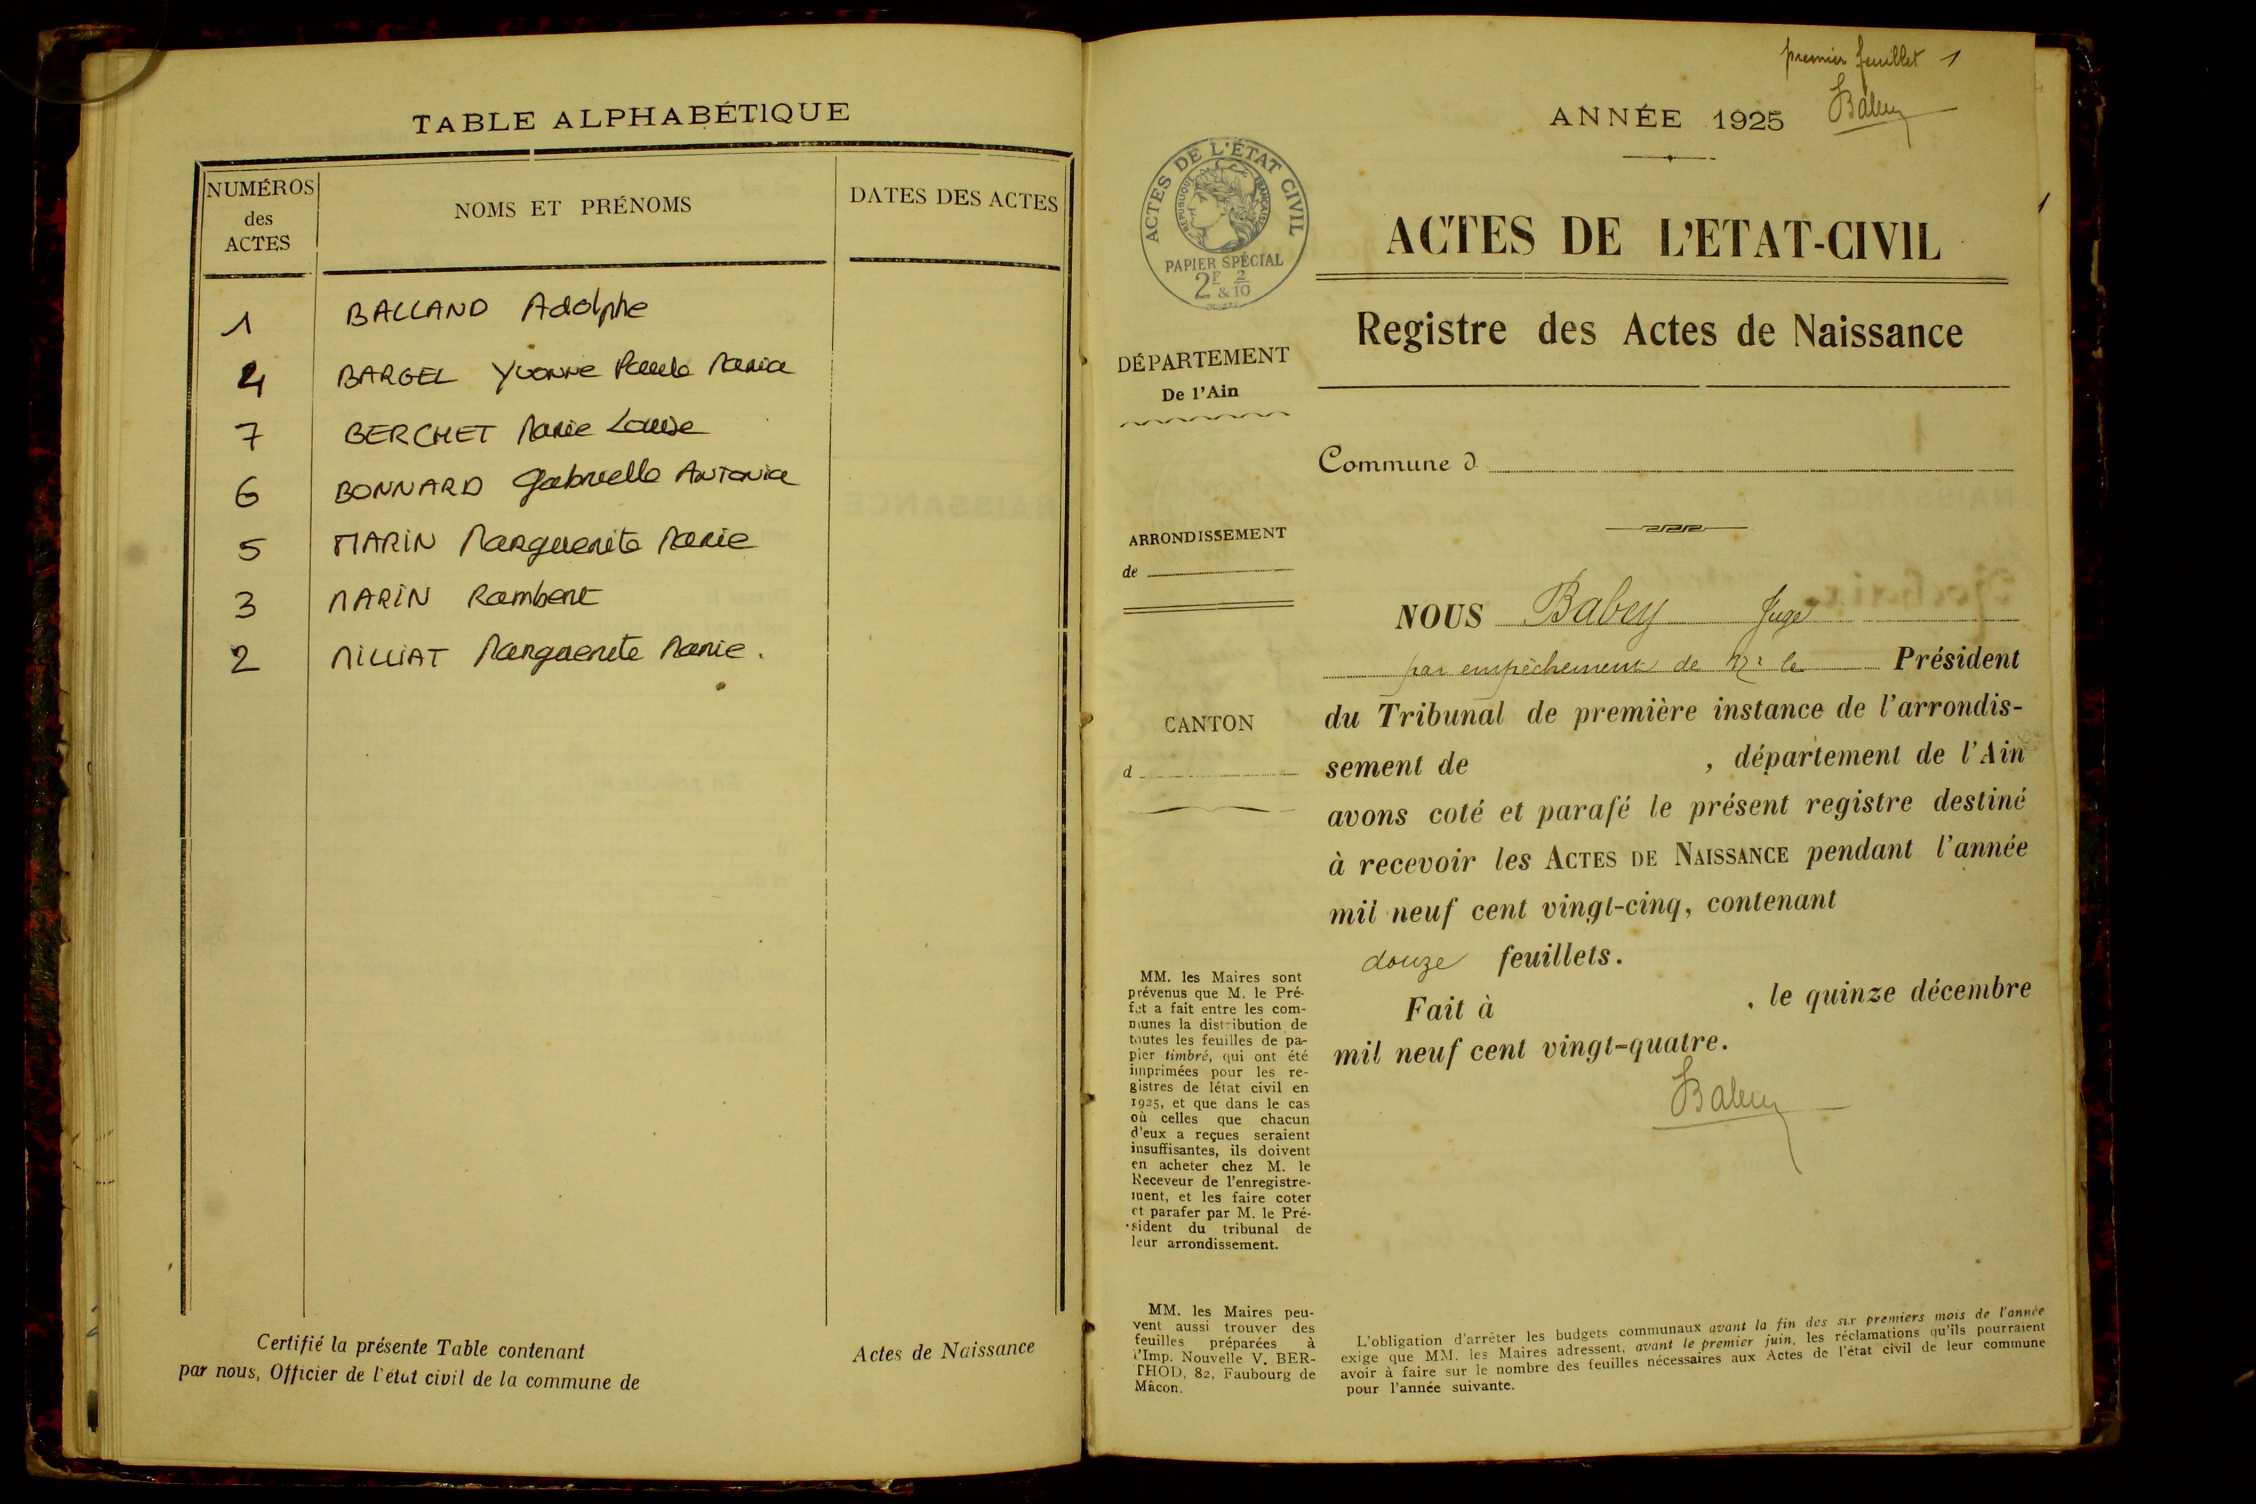 TABLE ALPHABÉTIQUE
NUMÉROS
des
ACTES
NOMS ET PRÉNOMS
DATES DES ACTES
1 BALLAND Adolphe
4 BARGEL Yvonne Paule Maria
7 BERCHET Marie Louise
6 BONNARD Gabrielle Antonia
5 MARIN Marguerite Marie
3 MARIN Rambert
2 MILLIAT Marguerite Marie.
Certifié la présente Table contenant
Actes de Naissance
par nous, Officier de l'état civil de la commune de
premier feuillet 1
Babey
ANNÉE 1925
1
ACTES DE L'ÉTAT CIVIL
RÉPUBLIQUE FRANÇAISE
PAPIER SPÉCIAL
2F & 2/10
ACTES DE L'ETAT-CIVIL
Registre des Actes de Naissance
DÉPARTEMENT
De l'Ain
Commune d
ARRONDISSEMENT
de
CANTON
d
NOUS Babey Juge
par empêchement de Mr le Président
du Tribunal de première instance de l'arrondis-
sement de , département de l'Ain
avons coté et parafé le présent registre destiné
à recevoir les ACTES DE NAISSANCE pendant l'année
mil neuf cent vingt-cinq, contenant
douze feuillets.
Fait à , le quinze décembre
mil neuf cent vingt-quatre.
Babey
MM. les Maires sont
prévenus que M. le Pré-
fet a fait entre les com-
munes la distribution de
toutes les feuilles de pa-
pier timbré, qui ont été
imprimées pour les re-
gistres de létat civil en
1925, et que dans le cas
où celles que chacun
d'eux a reçues seraient
insuffisantes, ils doivent
en acheter chez M. le
Receveur de l'enregistre-
ment, et les faire coter
et parafer par M. le Pré-
sident du tribunal de
leur arrondissement.
MM. les Maires peu-
vent aussi trouver des
feuilles préparées à
l'Imp. Nouvelle V. BER-
THOD, 82, Faubourg de
Mâcon.
L'obligation d'arrêter les budgets communaux avant la fin des six premiers mois de l'année
exige que MM. les Maires adressent, avant le premier juin, les réclamations qu'ils pourraient
avoir à faire sur le nombre des feuilles nécessaires aux Actes de l'état civil de leur commune
pour l'année suivante.